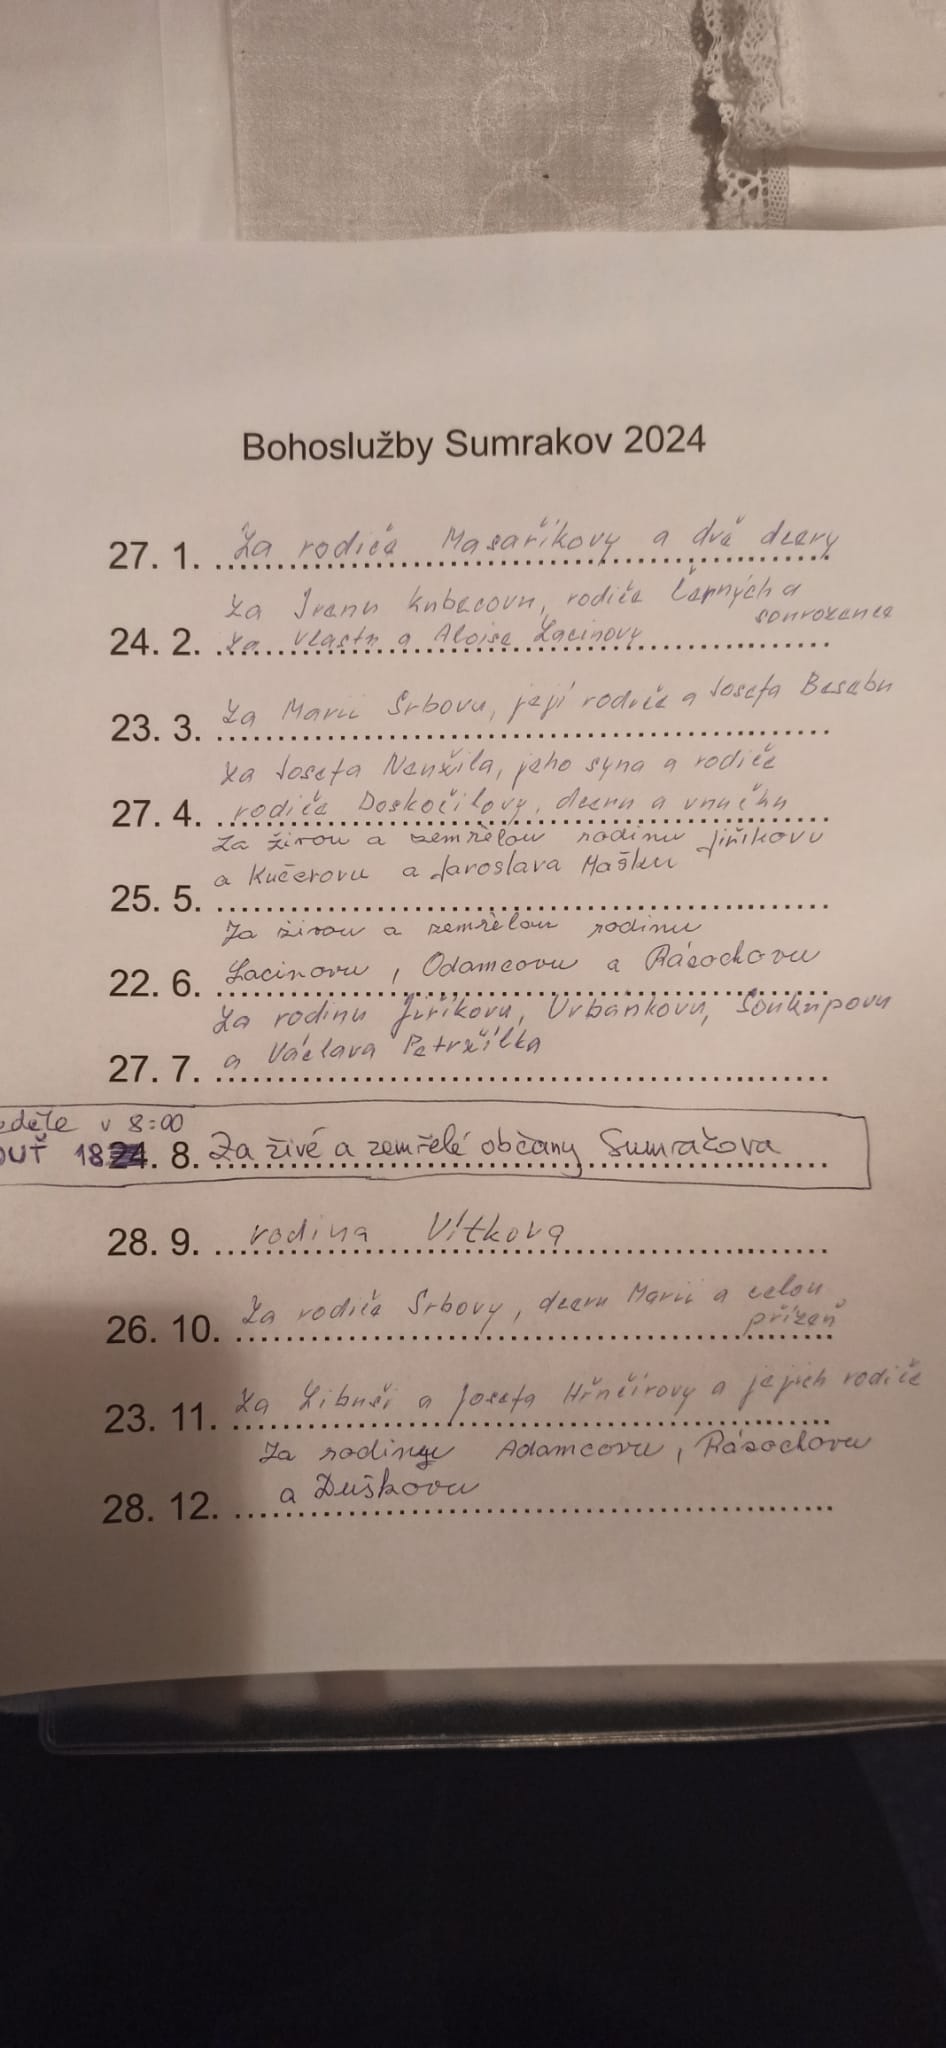 Bohoslužby Sumrakov 2024
27. 1. Za rodiče Masaříkovy a dvě dcery
Za Ivanu Kubecovu, rodiče Černých a
sourozence
24. 2. za Vlastu a Aloise Lacinovy
23. 3. Za Marii Srbovu, její rodiče a Josefa Basabu
Za Josefa Nenžila, jeho syna a rodiče
27. 4. rodiče Doskočilovy, dceru a vnučku
Za živou a zemřelou rodinu Jiříkovu
a Kučerovu a Jaroslava Mašku
25. 5.
Za živou a zemřelou rodinu
22. 6. Lacinovu, Adamcovu a Rásochovu
Za rodinu Jiříkovu, Urbánkovu, Soukupovu
27. 7. a Václava Petržílka
eděle v 8:00
OUŤ 18. 8. Za živé a zemřelé občany Sumrakova
28. 9. rodina Vítkova
26. 10. Za rodiče Srbovy, dceru Marii a celou
přízeň
23. 11. Za Libuši a Josefa Hrnčírovy a jejich rodiče
Za rodinu Adamcovu, Rásochovu
28. 12. a Duškovu